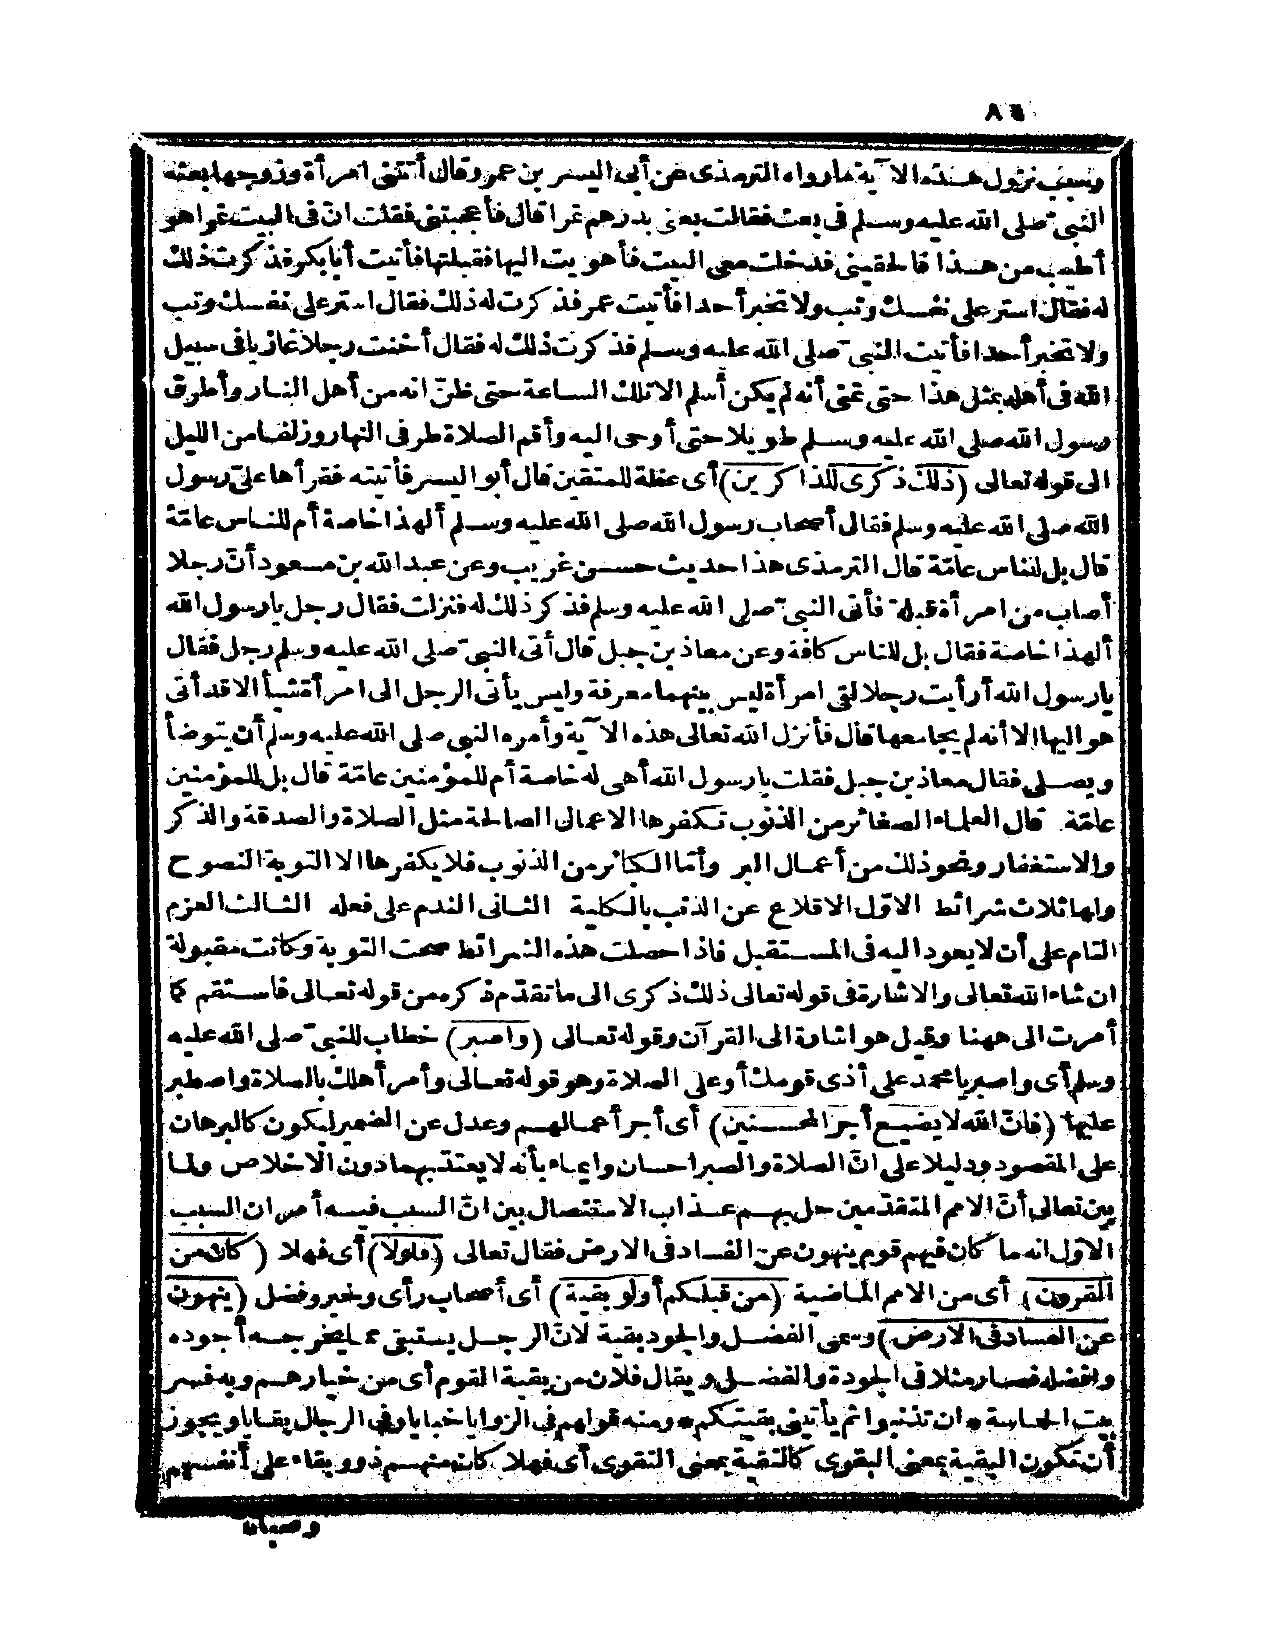 ٨٦
وسبب نزول هذه الآية ما رواه الترمذى عن أبى اليسر بن عمرو قال أتتنى امرأة وزوجها بعثه
النبىّ صلى الله عليه وسلم فى بعث فقالت بعنى بدرهم تمرا قال فأعجبتنى فقلت انّ فى البيت تمرا هو
أطيب من هذا فالحقينى فدخلت معى البيت فأهويت اليها فقبلتها فأتيت أبا بكر فذكرت ذلك
له فقال استر على نفسك وتب ولا تخبر أحدا فأتيت عمر فذكرت له ذلك فقال استر على نفسك وتب
ولا تخبر أحدا فأتيت النبىّ صلى الله عليه وسلم فذكرت ذلك له فقال أخنت رجلا غازيا فى سبيل
الله فى أهله بمثل هذا حتى تمنى أنه لم يكن أسلم الا تلك الساعة حتى ظنّ انه من أهل النار وأطرق
رسول الله صلى الله عليه وسلم طويلا حتى أوحى اليه وأقم الصلاة طرفى النهار وزلفا من الليل
الى قوله تعالى (ذلك ذكرى للذاكرين) أى عظة للمتقين قال أبو اليسر فأتيته فقرأها علىّ رسول
الله صلى الله عليه وسلم فقال أصحاب رسول الله صلى الله عليه وسلم ألهذا خاصة أم للناس عامّة
قال بل للناس عامّة قال الترمذى هذا حديث حسن غريب وعن عبد الله بن مسعود أنّ رجلا
أصاب من امرأة قبلة فأتى النبىّ صلى الله عليه وسلم فذكر ذلك له فنزلت فقال رجل يا رسول الله
ألهذا خاصة فقال بل للناس كافة وعن معاذ بن جبل قال أتى النبىّ صلى الله عليه وسلم رجل فقال
يا رسول الله أرأيت رجلا لقى امرأة ليس بينهما معرفة وليس يأتى الرجل الى امرأة شيأ الا قد أتى
هو اليها الا أنه لم يجامعها قال فأنزل الله تعالى هذه الآية وأمره النبى صلى الله عليه وسلم أن يتوضأ
ويصلى فقال معاذ بن جبل فقلت يا رسول الله أهى له خاصة أم للمؤمنين عامّة قال بل للمؤمنين
عامّة قال العلماء الصغائر من الذنوب تكفرها الاعمال الصالحة مثل الصلاة والصدقة والذكر
والاستغفار ونحو ذلك من أعمال البر وأمّا الكبائر من الذنوب فلا يكفرها الا التوبة النصوح
ولها ثلاث شرائط الاوّل الاقلاع عن الذنب بالكلية الثانى الندم على فعله الثالث العزم
التام على أن لا يعود اليه فى المستقبل فاذا حصلت هذه الشرائط صحت التوبة وكانت مقبولة
ان شاء الله تعالى والاشارة فى قوله تعالى ذلك ذكرى الى ما تقدّم ذكره من قوله تعالى فاستقم كما
أمرت الى ههنا وقيل هو اشارة الى القرآن وقوله تعالى (واصبر) خطاب للنبىّ صلى الله عليه
وسلم أى واصبر يا محمد على أذى قومك أو على الصلاة وهو قوله تعالى وأمر أهلك بالصلاة واصطبر
عليها (فانّ الله لا يضيع أجر المحسنين) أى أجر أعمالهم وعدل عن الضمير ليكون كالبرهان
على المقصود ودليلا على انّ الصلاة والصبر احسان وايماء بأنه لا يعتدّ بهما دون الاخلاص ولما
بين تعالى أنّ الامم المتقدّمين حل بهم عذاب الاستئصال بين انّ السبب فيه أمران السبب
الاوّل انه ما كان فيهم قوم ينهون عن الفساد فى الارض فقال تعالى (فلولا) أى فهلا (كان من
القرون) أى من الامم الماضية (من قبلكم أولو بقية) أى أصحاب رأى وخير وفضل (ينهون
عن الفساد فى الارض) وسمى الفضل والجود بقية لانّ الرجل يستبقى مما يخرجه أجوده
وافضله فصار مثلا فى الجودة والفضل ويقال فلان من بقية القوم أى من خيارهم وبه فسر
بيت الحماسة * ان تذنبوا ثم يأتينى بقيتكم * ومنه قولهم فى الزوايا خبايا وفى الرجال بقايا ويجوز
أن تكون البقية بمعنى البقوى كالتقية بمعنى التقوى أى فهلا كان منهم ذوو بقاء على أنفسهم
وصيانة